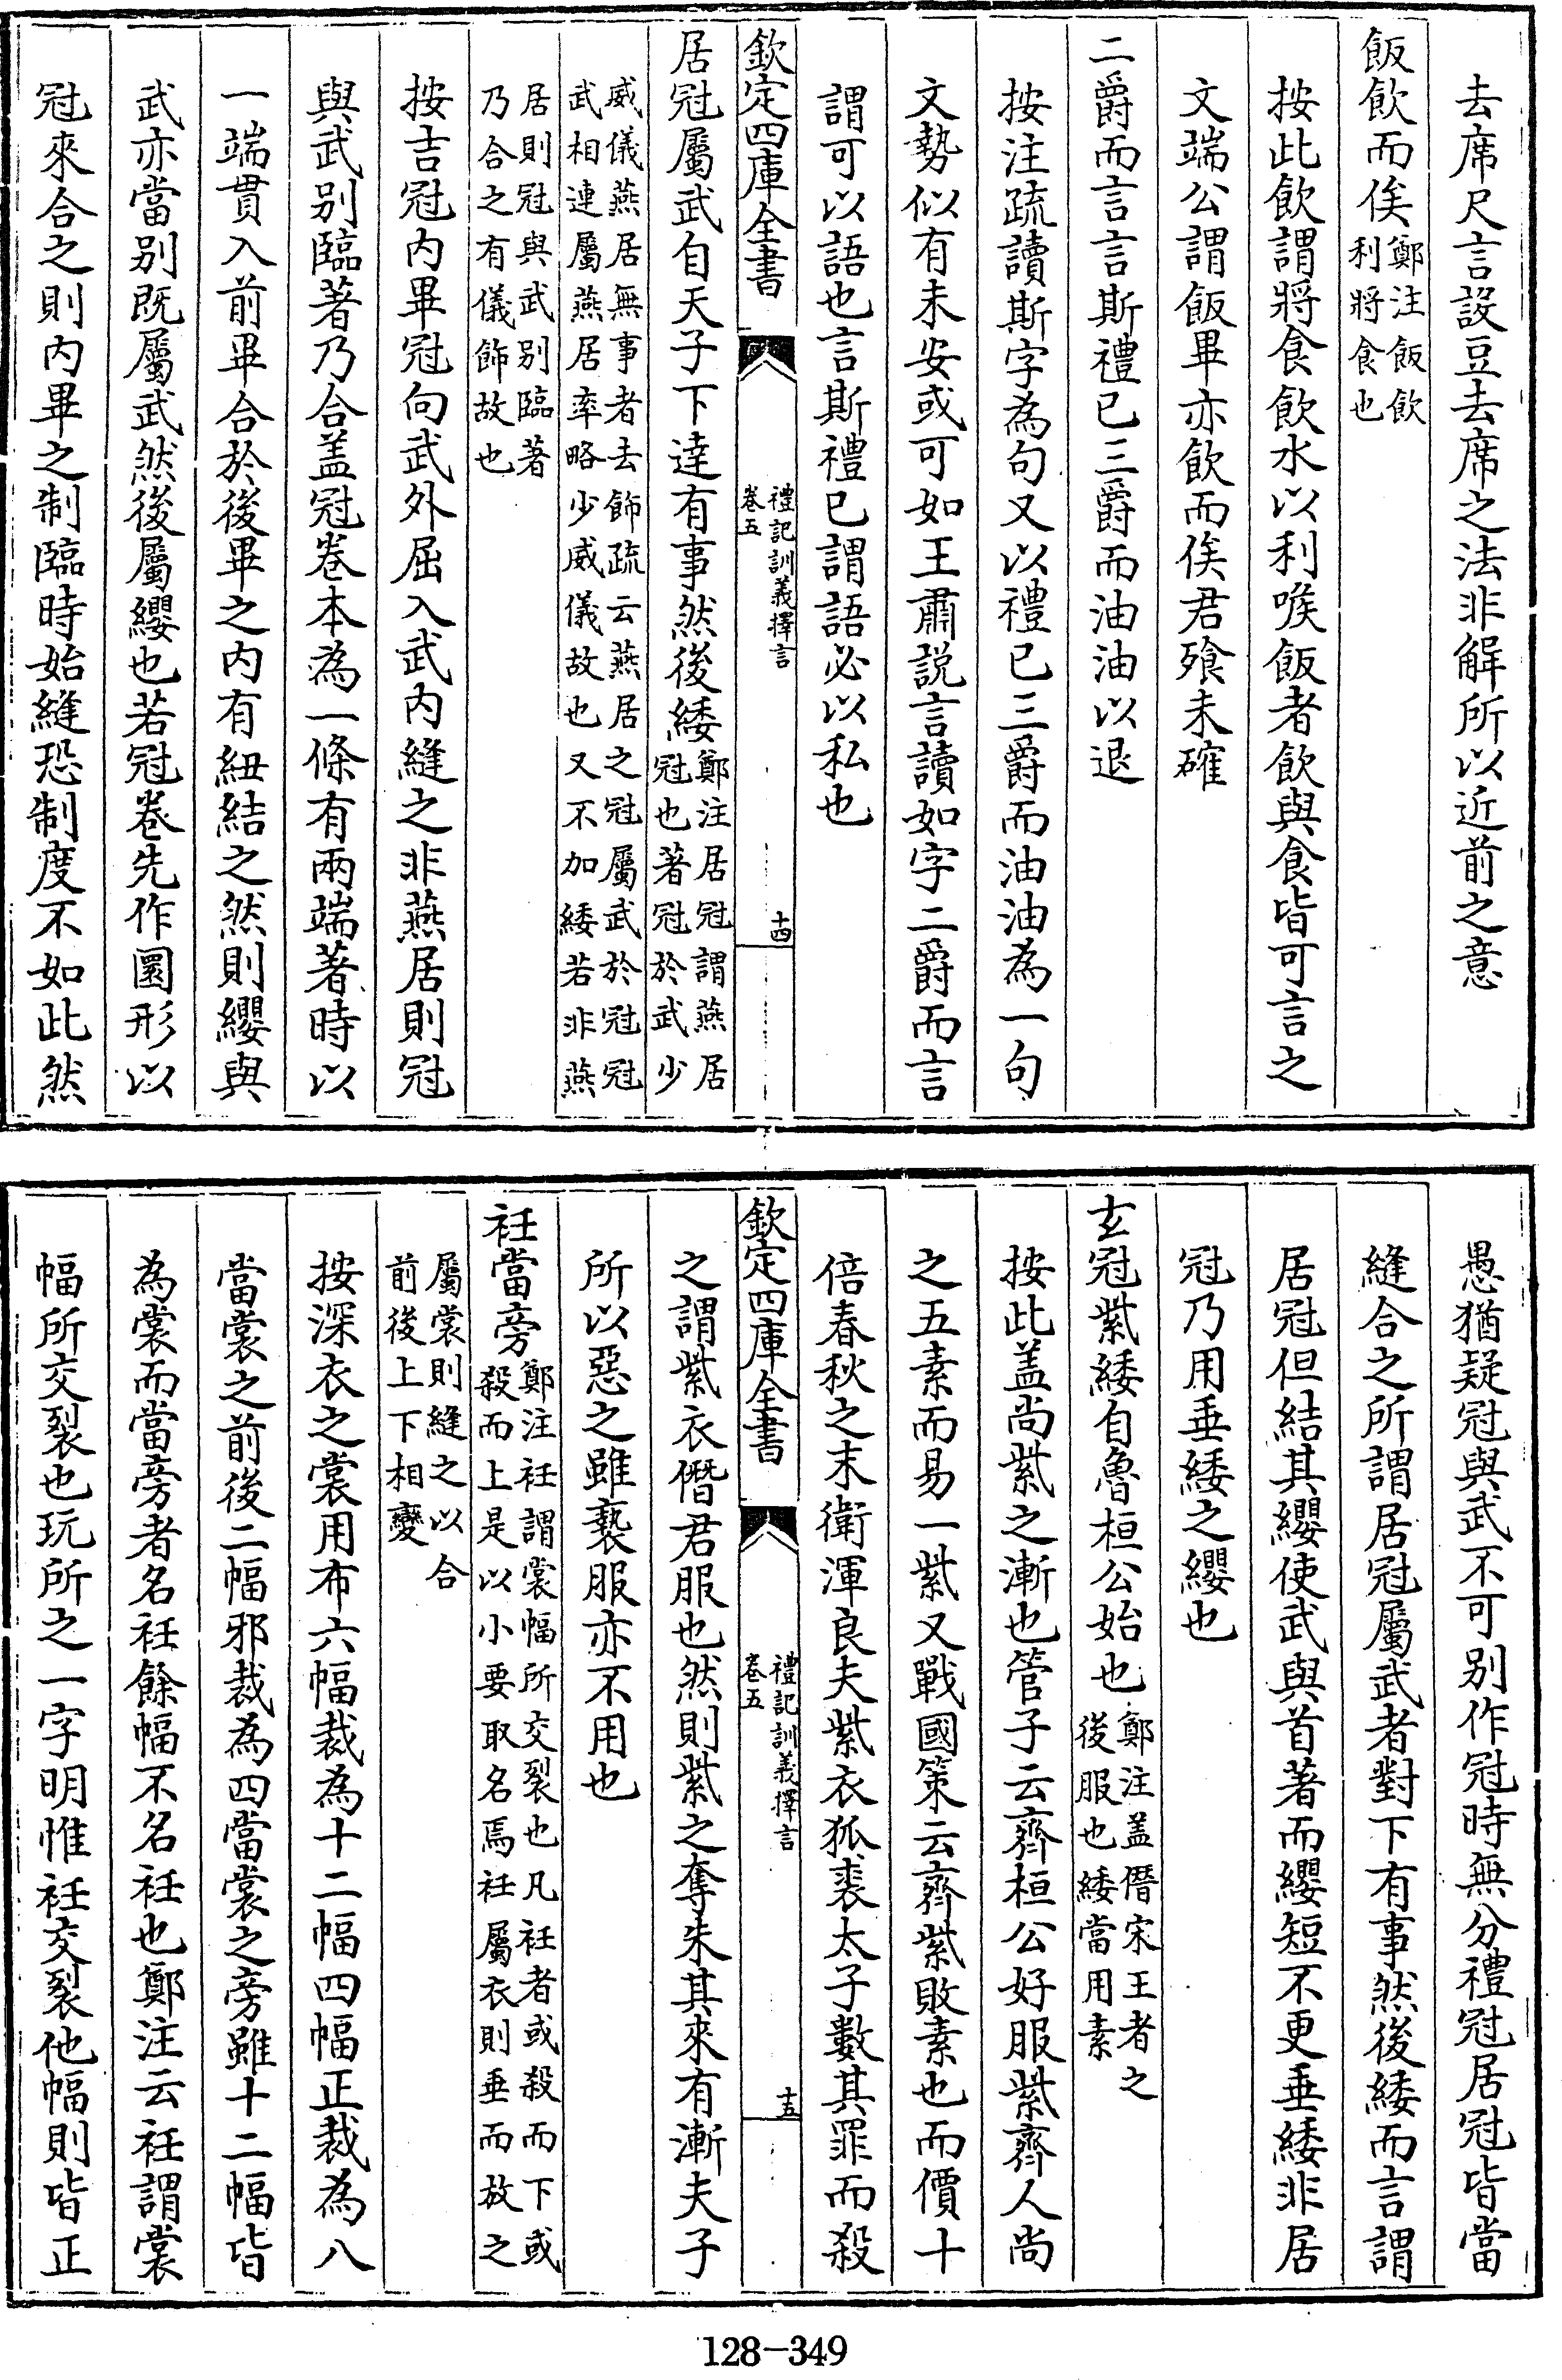 去席尺言設豆去席之法非解所以近前之意
飯飲而俟鄭注飯飲利將食也
按此飲謂將食飲水以利喉飯者飲與食皆可言之
文端公謂飯畢亦飲而俟君飱未確
二爵而言言斯禮已三爵而油油以退
按注疏讀斯字為句又以禮已三爵而油油為一句
文勢似有未安或可如王肅説言讀如字二爵而言
謂可以語也言斯禮已謂語必以私也
欽定四庫全書
禮記訓義擇言
卷五
十四
居冠屬武自天子下達有事然後緌鄭注居冠謂燕居冠也著冠於武少
威儀燕居無事者去飾疏云燕居之冠屬武於冠冠
武相連屬燕居率略少威儀故也又不加緌若非燕
居則冠與武别臨著
乃合之有儀飾故也
按吉冠内畢冠向武外屈入武内縫之非燕居則冠
與武别臨著乃合盖冠卷本為一條有兩端著時以
一端貫入前畢合於後畢之内有紐結之然則纓與
武亦當别既屬武然後屬纓也若冠卷先作圜形以
冠來合之則内畢之制臨時始縫恐制度不如此然
愚猶疑冠與武不可别作冠時無分禮冠居冠皆當
縫合之所謂居冠屬武者對下有事然後緌而言謂
居冠但結其纓使武與首著而纓短不更垂緌非居
冠乃用垂緌之纓也
玄冠紫緌自魯桓公始也鄭注盖僭宋王者之後服也緌當用素
按此盖尚紫之漸也管子云齊桓公好服紫齊人尚
之五素而易一紫又戰國策云齊紫敗素也而價十
倍春秋之末衛渾良夫紫衣狐裘太子數其罪而殺
欽定四庫全書
禮記訓義擇言
卷五
十五
之謂紫衣僭君服也然則紫之奪朱其來有漸夫子
所以惡之雖褻服亦不用也
衽當旁鄭注衽謂裳幅所交裂也凡衽者或殺而下或殺而上是以小要取名焉衽屬衣則垂而放之
屬裳則縫之以合
前後上下相變
按深衣之裳用布六幅裁為十二幅四幅正裁為八
當裳之前後二幅邪裁為四當裳之旁雖十二幅皆
為裳而當旁者名衽餘幅不名衽也鄭注云衽謂裳
幅所交裂也玩所之一字明惟衽交裂他幅則皆正
128-349